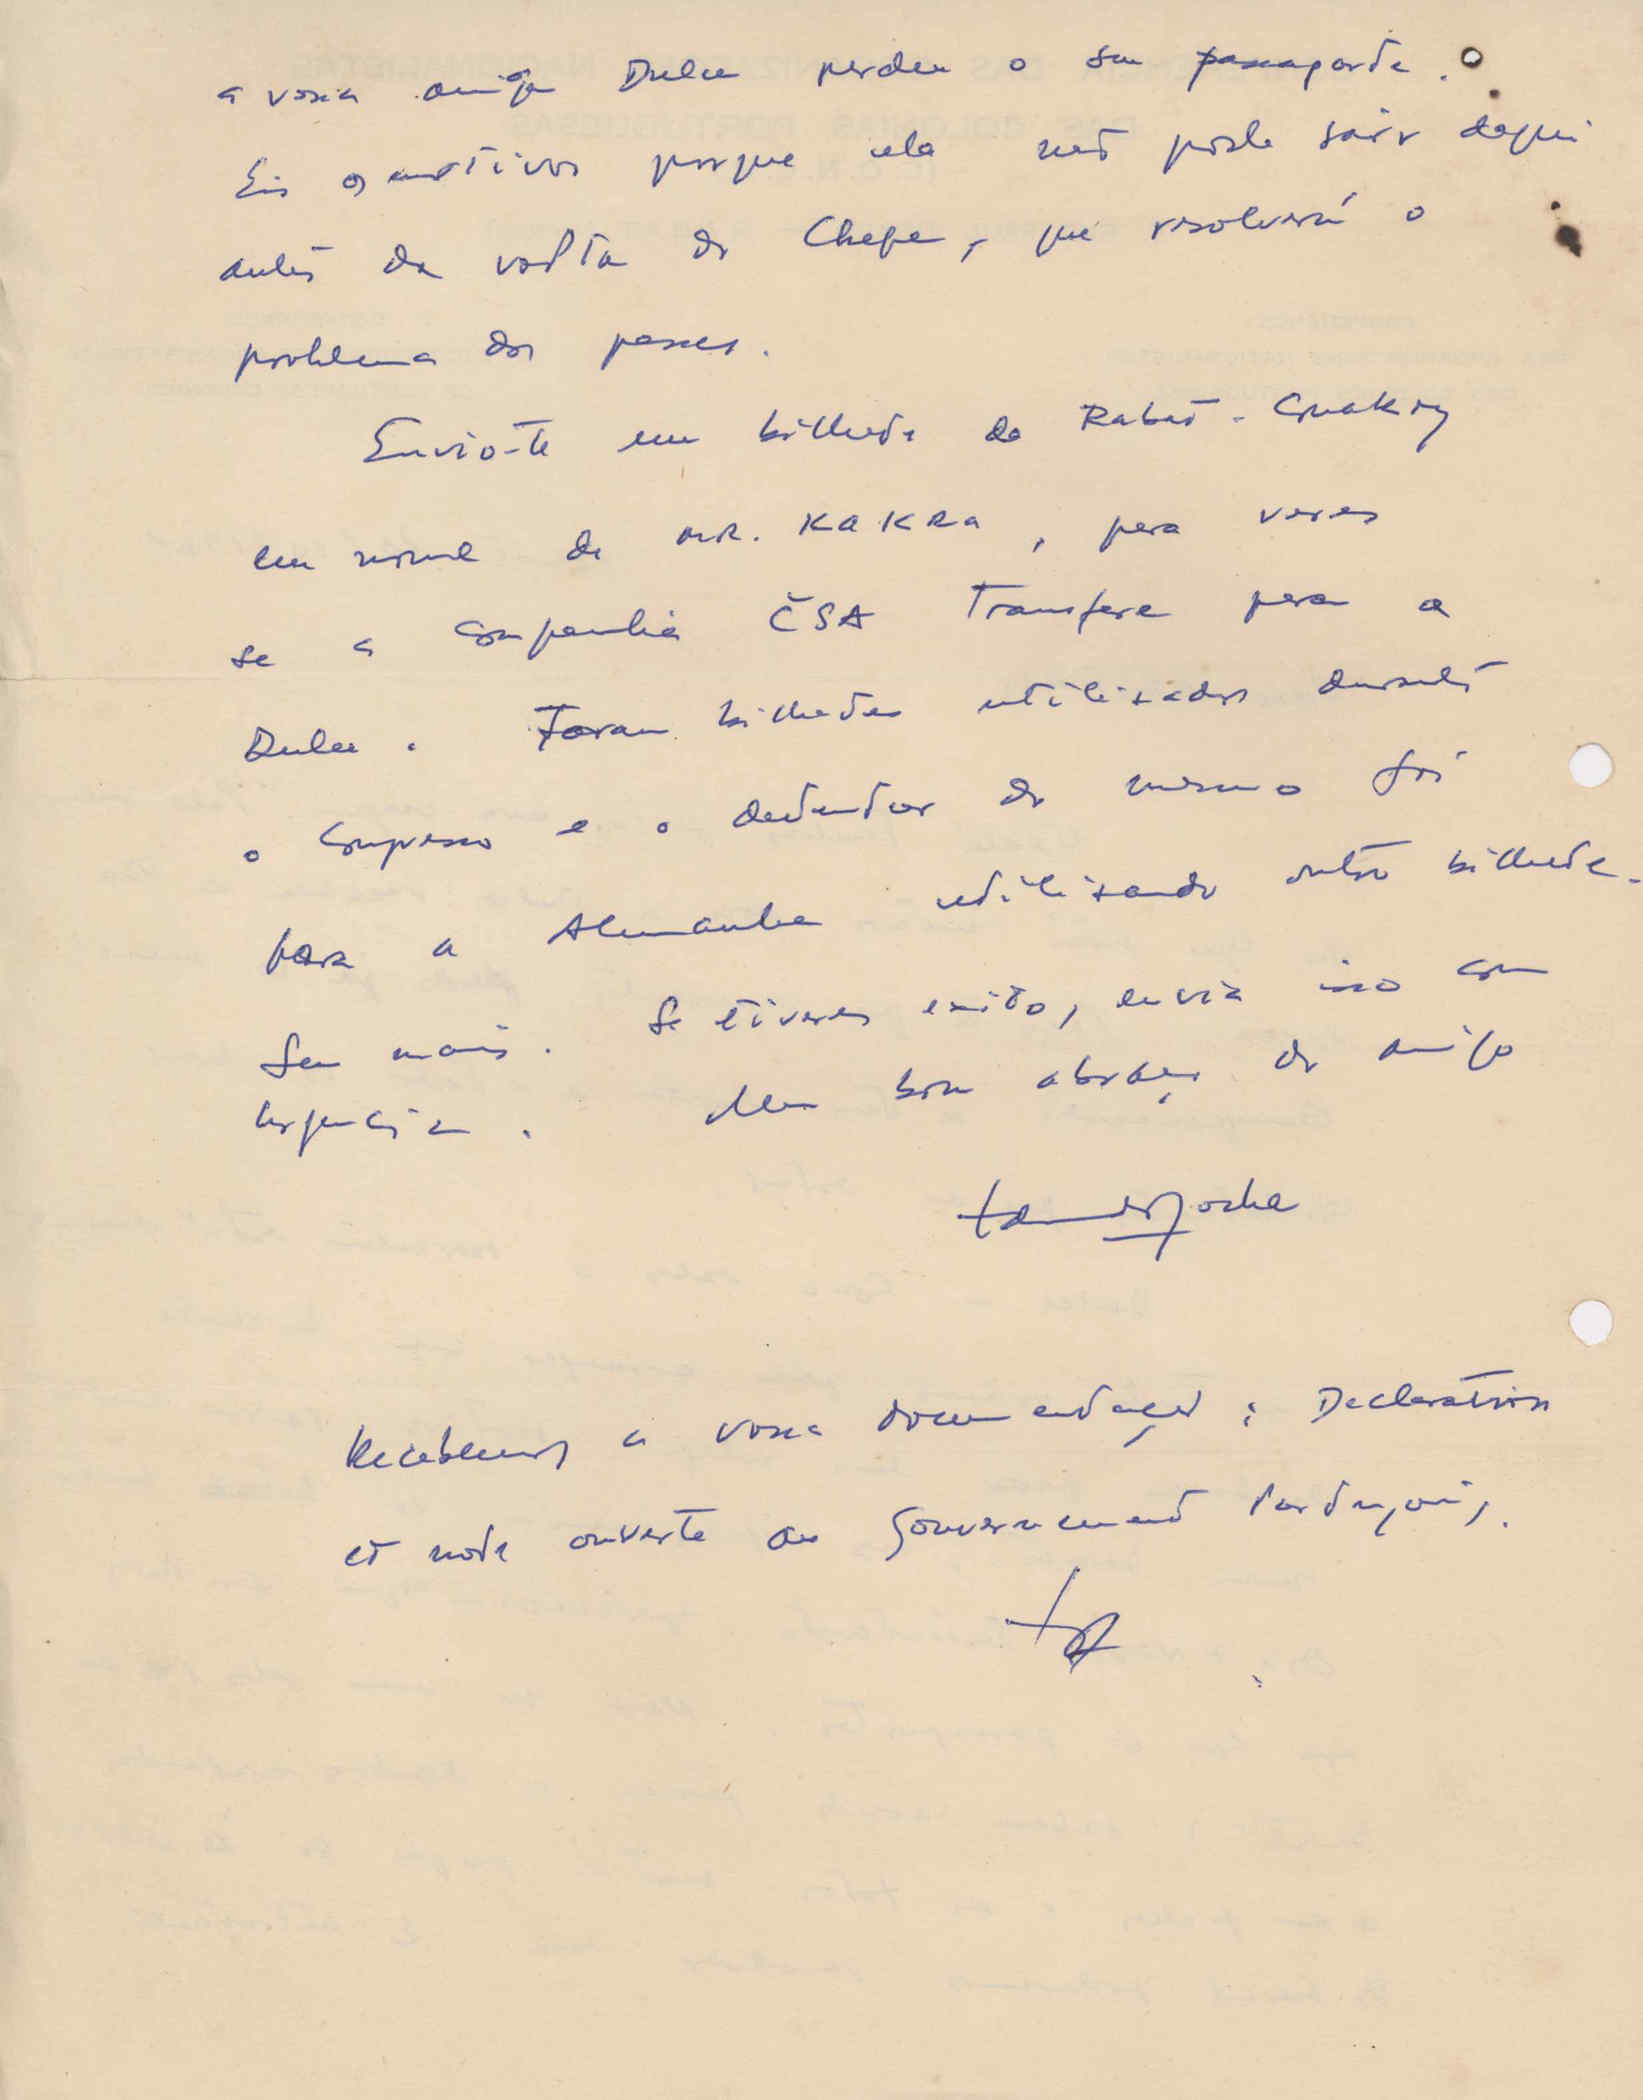 a vossa amiga Dulce perdeu o seu passaporte.
Eis os motivos porque ela não pode sair daqui
antes da volta do Chefe, que resolverá o
problema dos passes.
Envio-te um bilhete de Rabat-Conakry
em nome de MR. KAKRA, para veres
se a Companhia ČSA transfere para a
Dulce. Foram bilhetes utilizados durante
o Congresso e o detentor do mesmo foi
para a Alemanha utilizando outro bilhete.
Sem mais. Se tiveres exito, envia isso com
urgência. Um bom abraço do amigo
Recebemos a vossa documentação: Declaration
et note ouverte au Gouvernement Portugais.